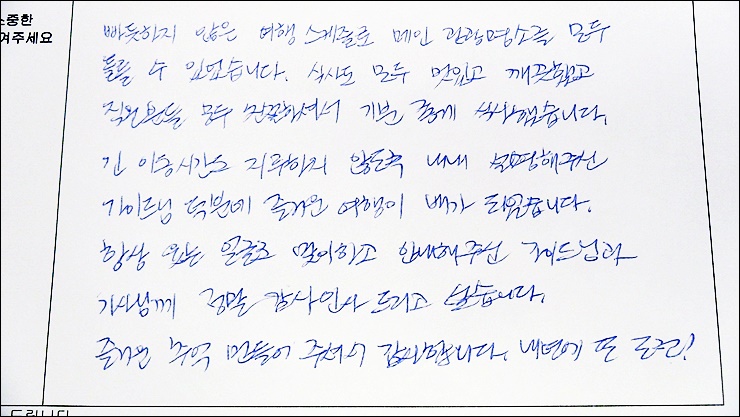 소중한
겨주세요
빠듯하지 않은 여행 스케줄로 메인 관광명소를 모두
들를 수 있었습니다. 식사도 모두 맛있고 깨끗했고
직원분들 모두 친절하셔서 기분 좋게 식사했습니다.
긴 이동시간도 지루하지 않도록 내내 설명해주신
가이드님 덕분에 즐거운 여행이 배가 되었습니다.
항상 웃는 얼굴로 맞이하고 안내해주신 가이드님과
기사님께 정말 감사인사 드리고 싶습니다.
즐거운 추억 만들어 주셔서 감사합니다. 내년에 또
드립니다